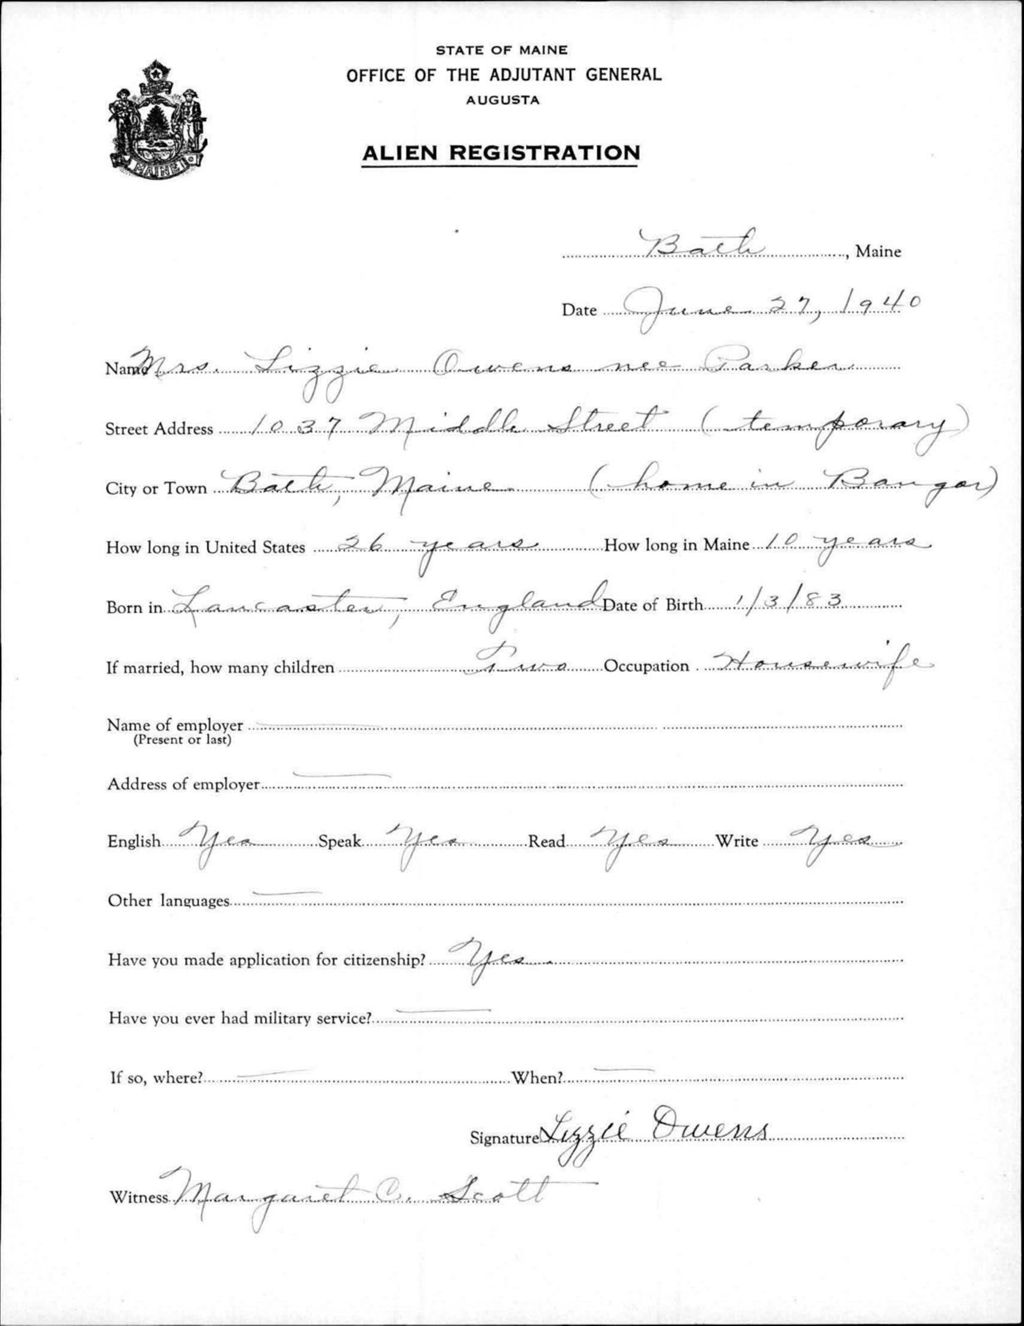 STATE OF MAINE
OFFICE OF THE ADJUTANT GENERAL
AUGUSTA
ALIEN REGISTRATION
MAINE
Bath, Maine
Date June 27, 1940
Name Mrs. Lizzie Owens nee Parker
Street Address 1037 Middle Street (temporary)
City or Town Bath, Maine (home in Bangor)
How long in United States 26 years How long in Maine 10 years
Born in Lancaster, England Date of Birth 1/3/83
If married, how many children Two Occupation Housewife
Name of employer
(Present or last)
Address of employer
English Yes Speak Yes Read Yes Write Yes
Other languages
Have you made application for citizenship? Yes.
Have you ever had military service?
If so, where? When?
Signature Lizzie Owens
Witness Margaret C. Scott